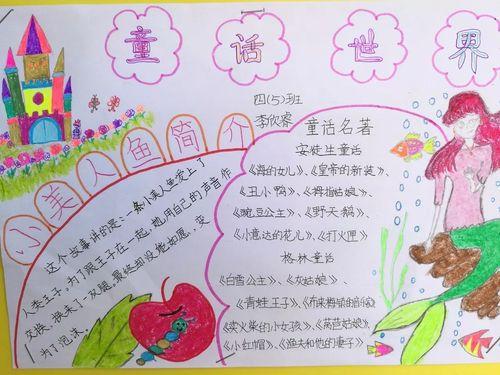 童话世界
四(5)班
李欣睿
小美人鱼简介
这个故事讲的是:一条小美人鱼爱上了
人类王子,为了跟王子在一起,她用自己的声音作
交换,换来了一双腿,最终却没能如愿、变
为了泡沫。
童话名著
安徒生童话
《海的女儿》、《皇帝的新装》、
《丑小鸭》、《拇指姑娘》、
《豌豆公主》、《野天鹅》、
《小意达的花儿》、《打火匣》
格林童话
《白雪公主》、《灰姑娘》、
《青蛙王子》、
《卖火柴的小女孩》、《莴苣姑娘》、
《小红帽》、《渔夫和他的妻子》